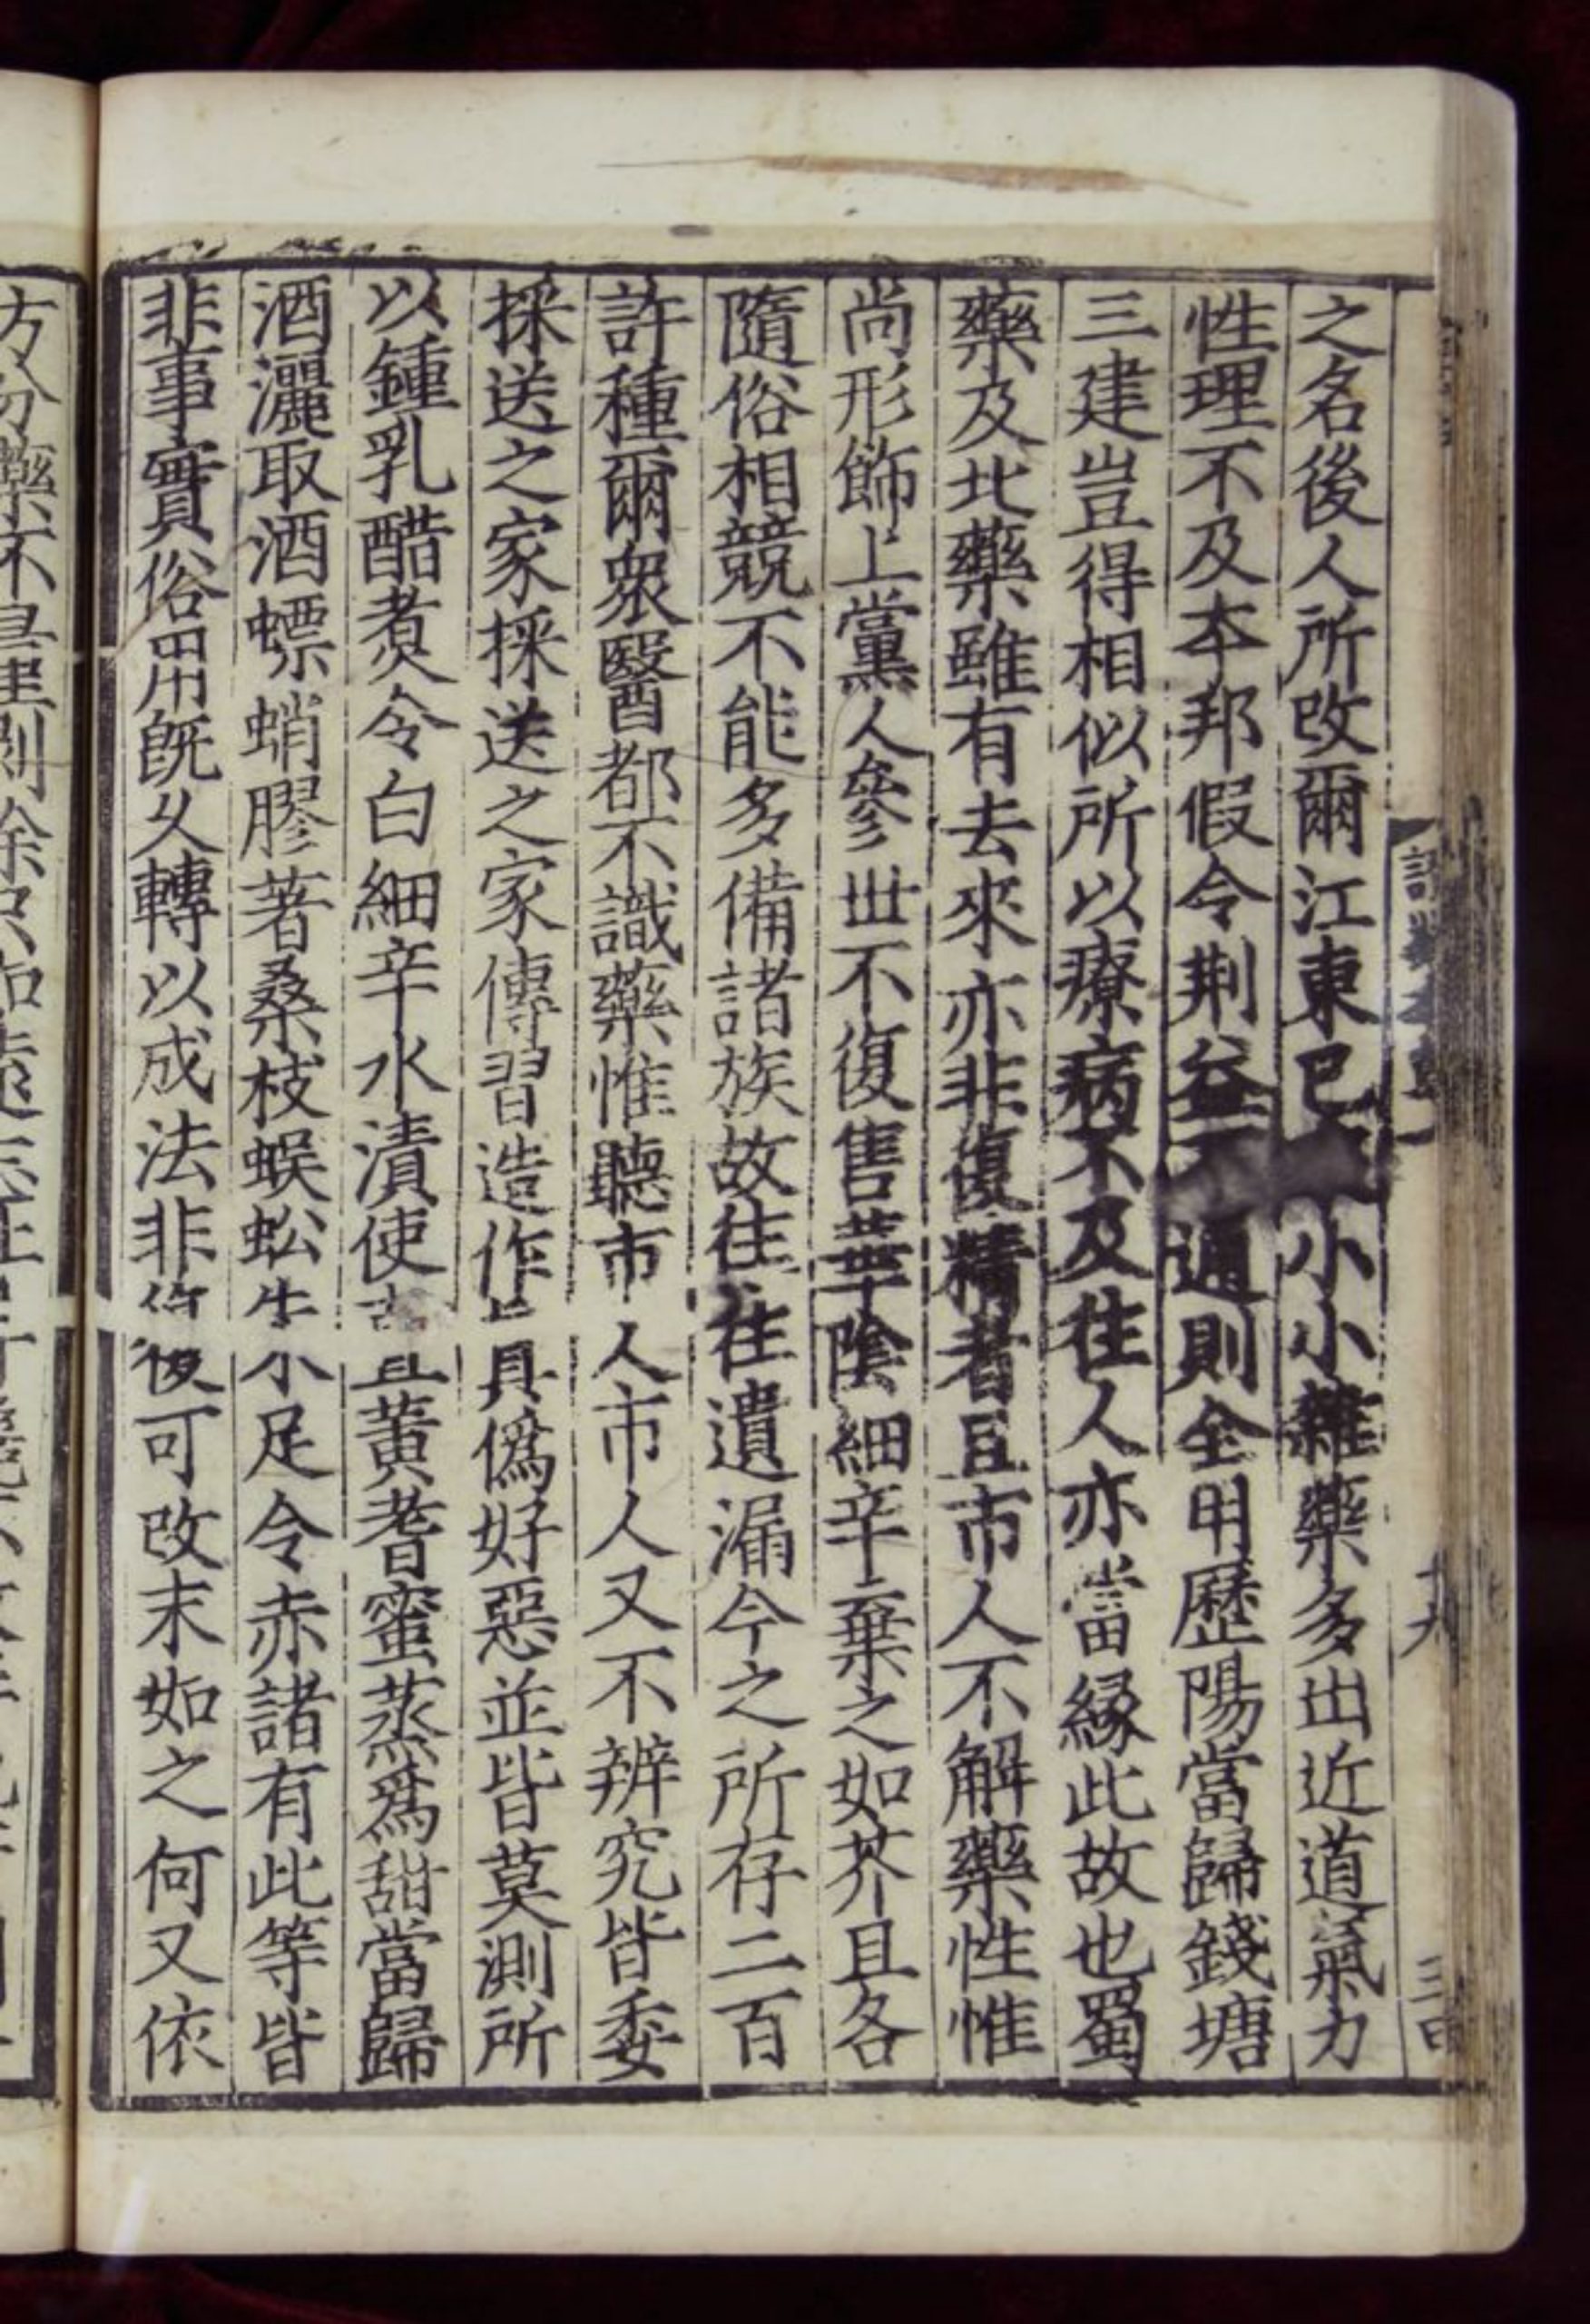 之名後人所改爾江東已小小雜藥多出近道氣力
性理不及本邦假令荆益不通則全用歷陽當歸錢塘
三建豈得相似所以療病不及往人亦當緣此故也蜀
藥及北藥雖有去來亦非復精者且市人不解藥性惟
尚形飾上黨人參世不復售華陰細辛棄之如芥且各
隨俗相競不能多備諸族故往往遺漏今之所存二百
許種爾衆醫都不識藥惟聽市人市人又不辨究皆委
採送之家採送之家傳習造作真僞好惡並皆莫測所
以鍾乳醋煑令白細辛水漬使直黄耆蜜蒸爲甜當歸
酒灑取酒螵蛸膠著桑枝蜈蚣朱足令赤諸有此等皆
非事實俗用旣久轉以成法非復可改末如之何又依
十九